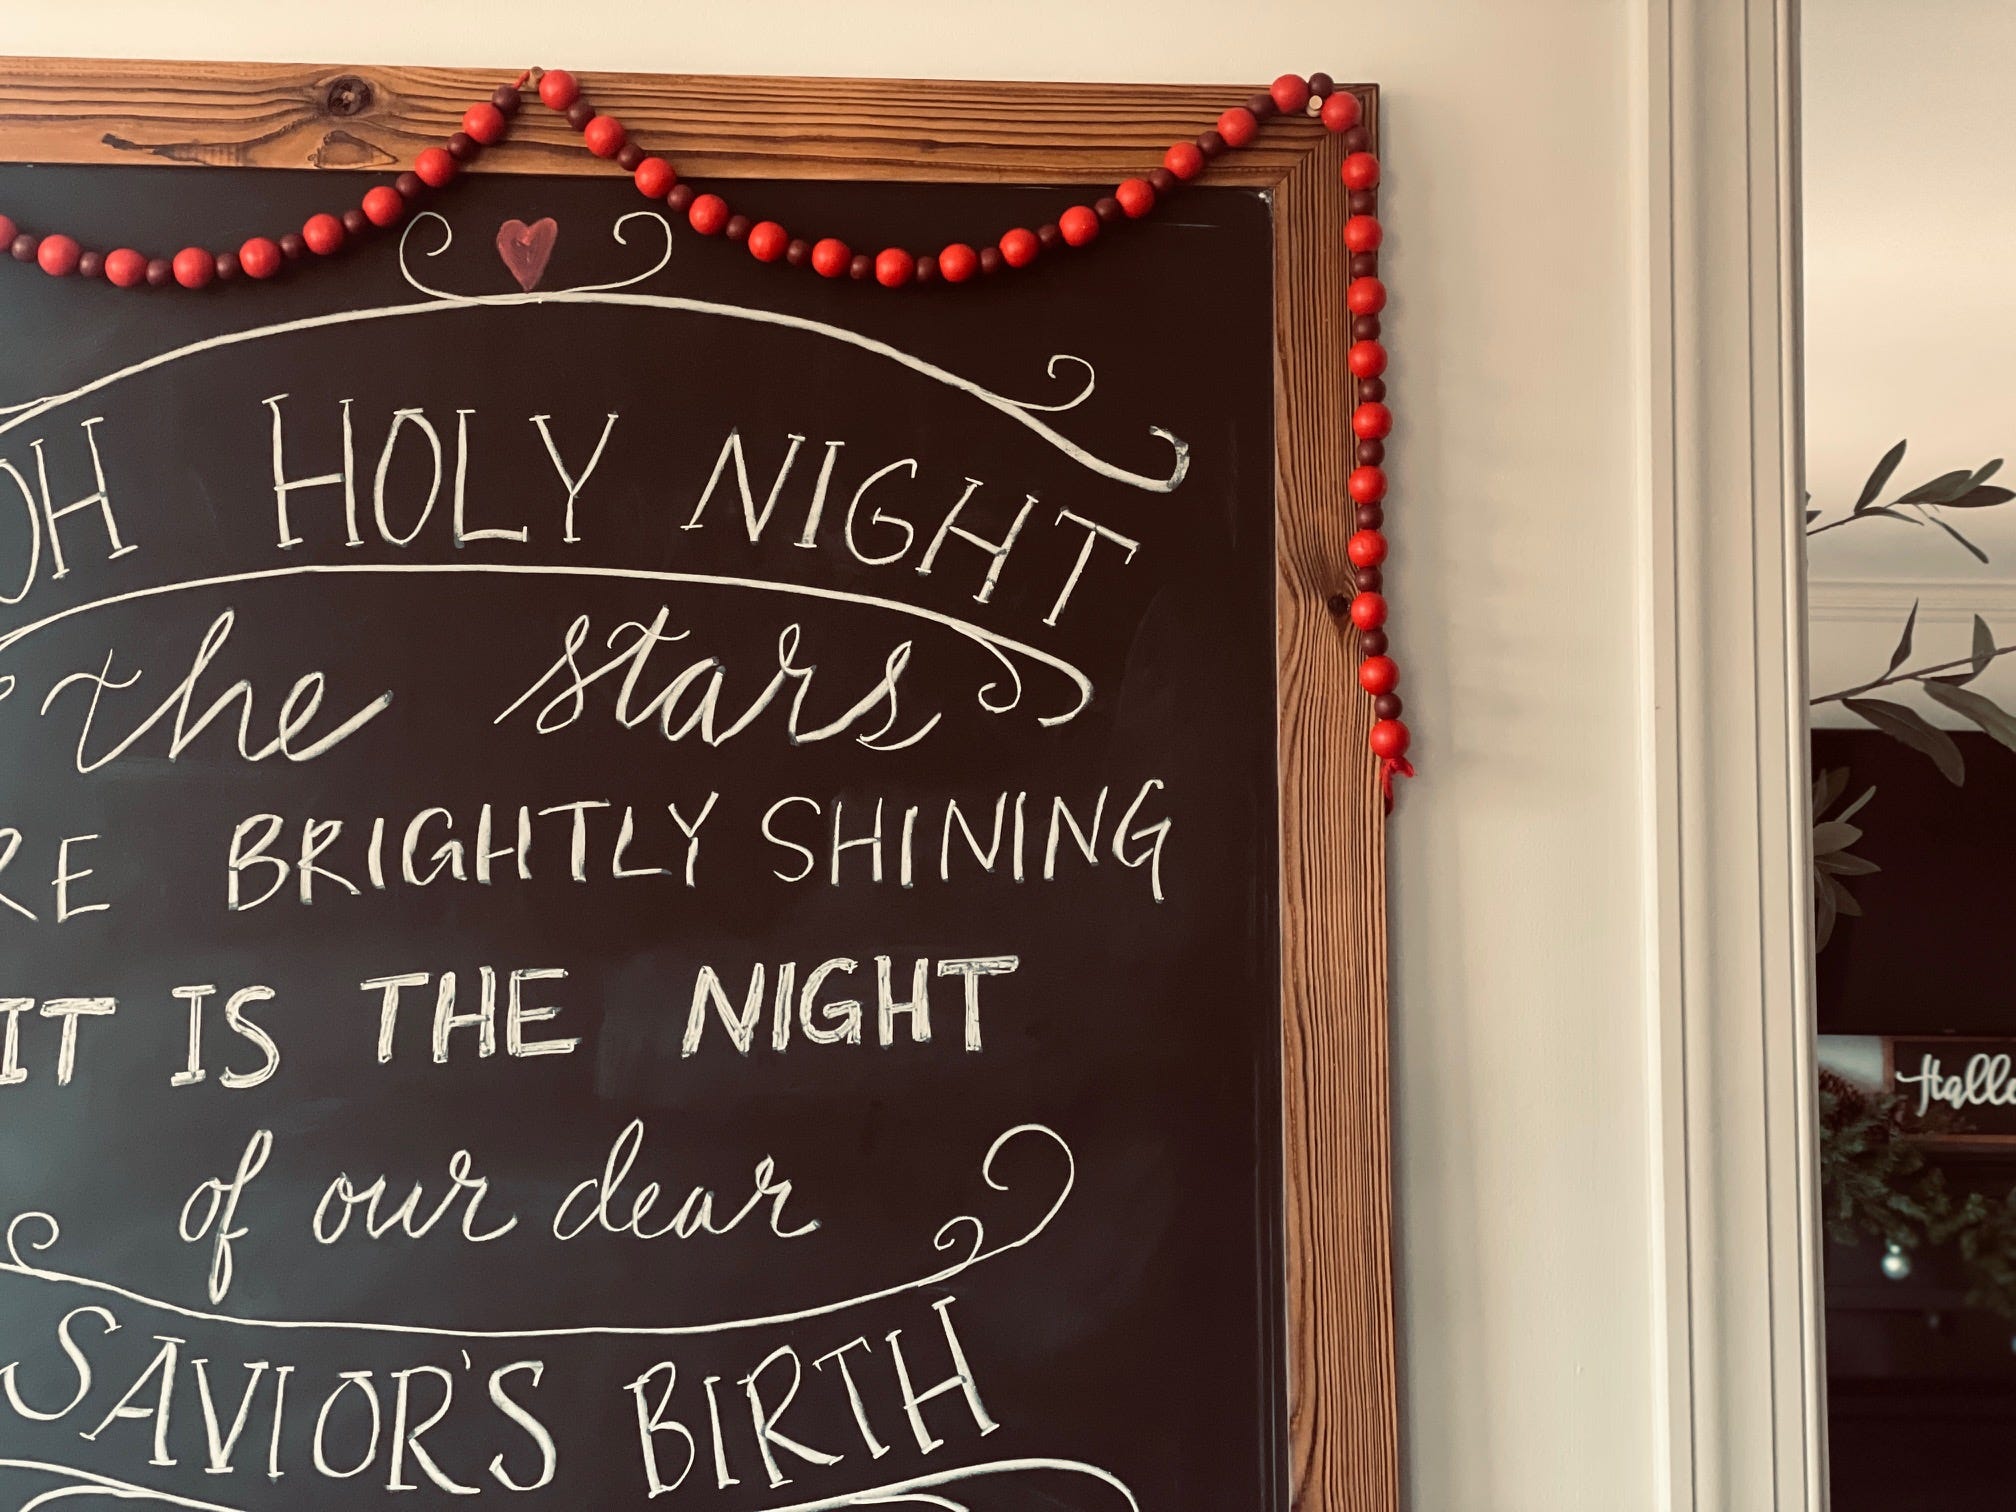 OH HOLY NIGHT
the stars
RE BRIGHTLY SHINING
IT IS THE NIGHT
of our dear
SAVIOR'S BIRTH